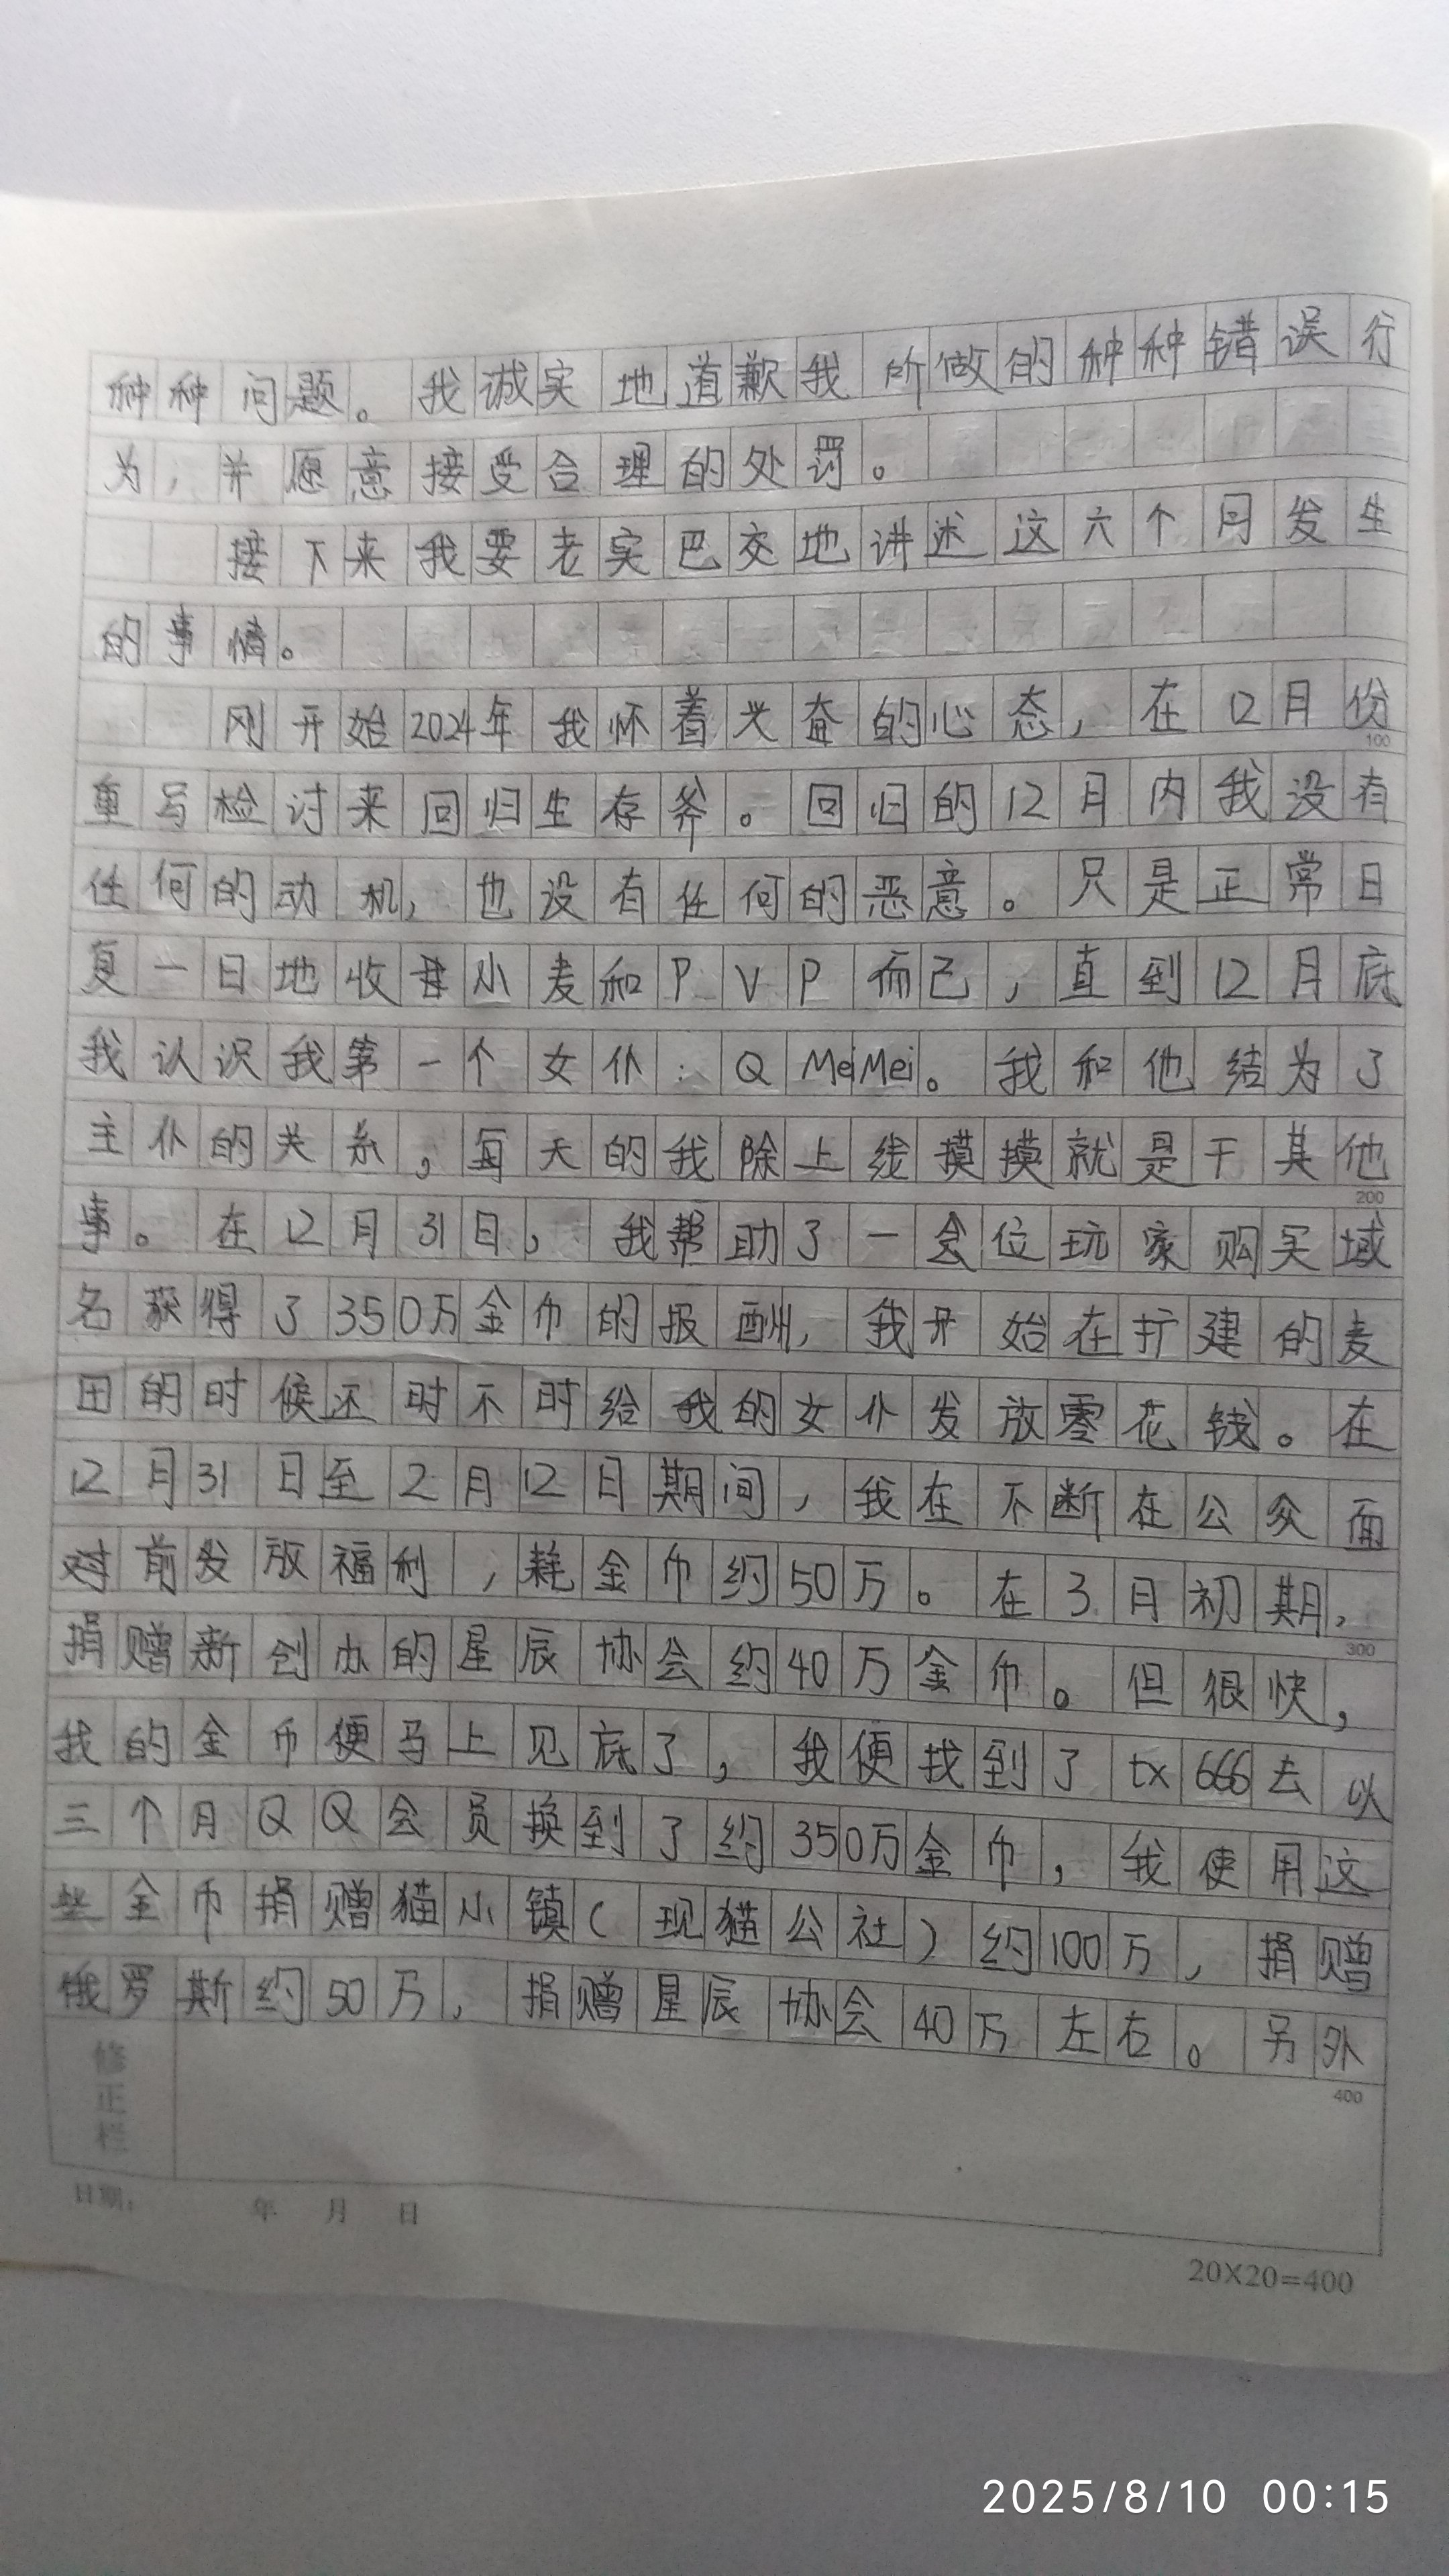 种种问题。我诚实地道歉我所做的种种错误行
为，并愿意接受合理的处罚。
接下来我要老实巴交地讲述这六个月发生
的事情。
刚开始2024年我怀着兴奋的心态，在12月份
100
重写检讨来回归生存斧。回归的12月内我没有
任何的动机，也没有任何的恶意。只是正常日
复一日地收割小麦和PVP而已，直到12月底
我认识我第一个女仆：QMeiMei。我和他结为了
主仆的关系，每天的我除上线摸摸就是干其他
200
事。在12月31日，我帮助了一位玩家购买域
名获得了350万金币的报酬，我开始在扩建的麦
田的时候还时不时给我的女仆发放零花钱。在
12月31日至2月12日期间，我在不断在公众面
对前发放福利，耗金币约50万。在3月初期，
300
捐赠新创办的星辰协会约40万金币。但很快，
我的金币便马上见底了，我便找到了tx666去以
三个月QQ会员换到了约350万金币，我使用这
些金币捐赠猫小镇(现猫公社)约100万，捐赠
俄罗斯约50万，捐赠星辰协会40万左右。另外
400
修正栏
日期： 年 月 日
20X20=400
2025/8/10 00:15